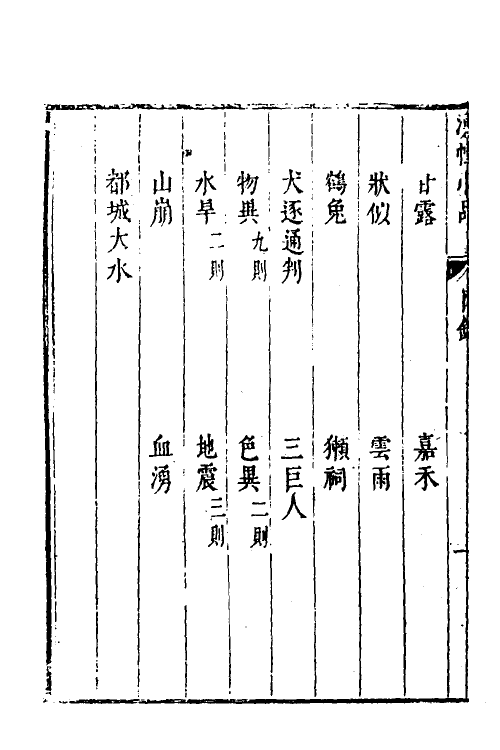 甘露 嘉禾
狀似 雲雨
鶴兔 獺祠
犬逐通判 三巨人
物異九則 色異二則
水旱二則 地震三則
山崩 血湧
都城大水